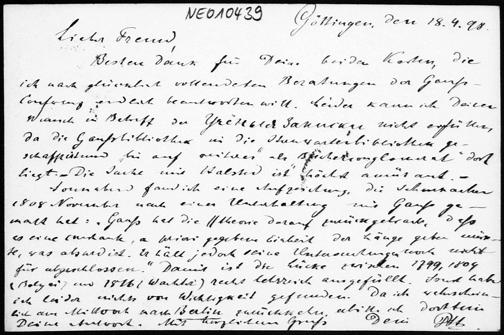 NE010439
Göttingen, den 18.4.98.
Lieber Freund,
Besten Dank für Deine beiden Karten, die
ich nach glücklich vollendeten Beratungen der Gauß-
erst beantworten will. Leider kann ich Deinen
Wunsch in Betreff der Учёныя Записки nicht erfüllen,
da die Gaußbibliothek in die Sternwartenbibliothek ge-
schafft und bis auf weiteres als Bücherconglomerat dort
liegt. Die Sache mit Halsted ist höchst amüsant.
Sonnabend fand ich eine Aufzeichnung, die Schumacher
1808 November nach einer Unterhaltung mit Gauß ge-
macht hat: Gauß hat die theorie darauf zurückgebracht, daß
es eine constante, a priori gegebene Linie der Länge geben müss-
te, was absurd ist. Er hält jedoch seine Untersuchung noch nicht
für abgeschlossen." Damit ist die Lücke zwischen 1799, 1804
(Bolyai) und 1816 (Wachter) recht ausgefüllt. Sonst habe
ich leider nichts von Wichtigkeit gefunden. Da ich
am Mittwoch nach Berlin zurückkehre, bitte ich dorthin
Deine Antwort. Mit herzlichem Gruß Dein